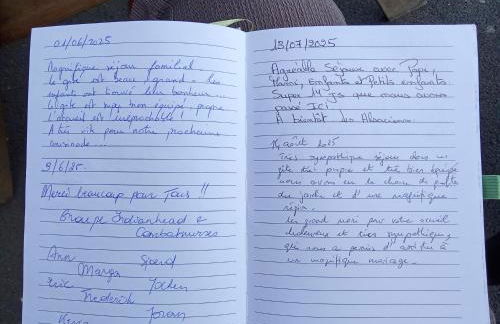 01/06/2025
Magnifique séjour familial
Le gîte est beau, grand. Les
enfants ont trouvé leur bonheur...
Le gîte est super bien équipé, propre
L'accueil est irréprochable !
A très vite pour notre prochaine
cousinade...
9/6/25.
Merci beaucoup pour Tous !!
Groupe Indianhead &
Combatnurses
Ann Sjoerd
Marga
Eric Jochen
Frederick
Joran
13/07/2025
Agréable Séjour avec Papi,
Mami, Enfants et Petits enfants
Super 14 Jrs que nous avons
passé Ici
A bientôt les Alsaciens
14 août 2025
Très sympathique séjour dans un
gîte très propre et très bien équipé
nous avons eu la chance de profiter
du jardin et d'une magnifique
région.
Un grand merci pour votre accueil
chaleureux et très sympathique,
qui nous a permis d'assister à
un magnifique mariage.